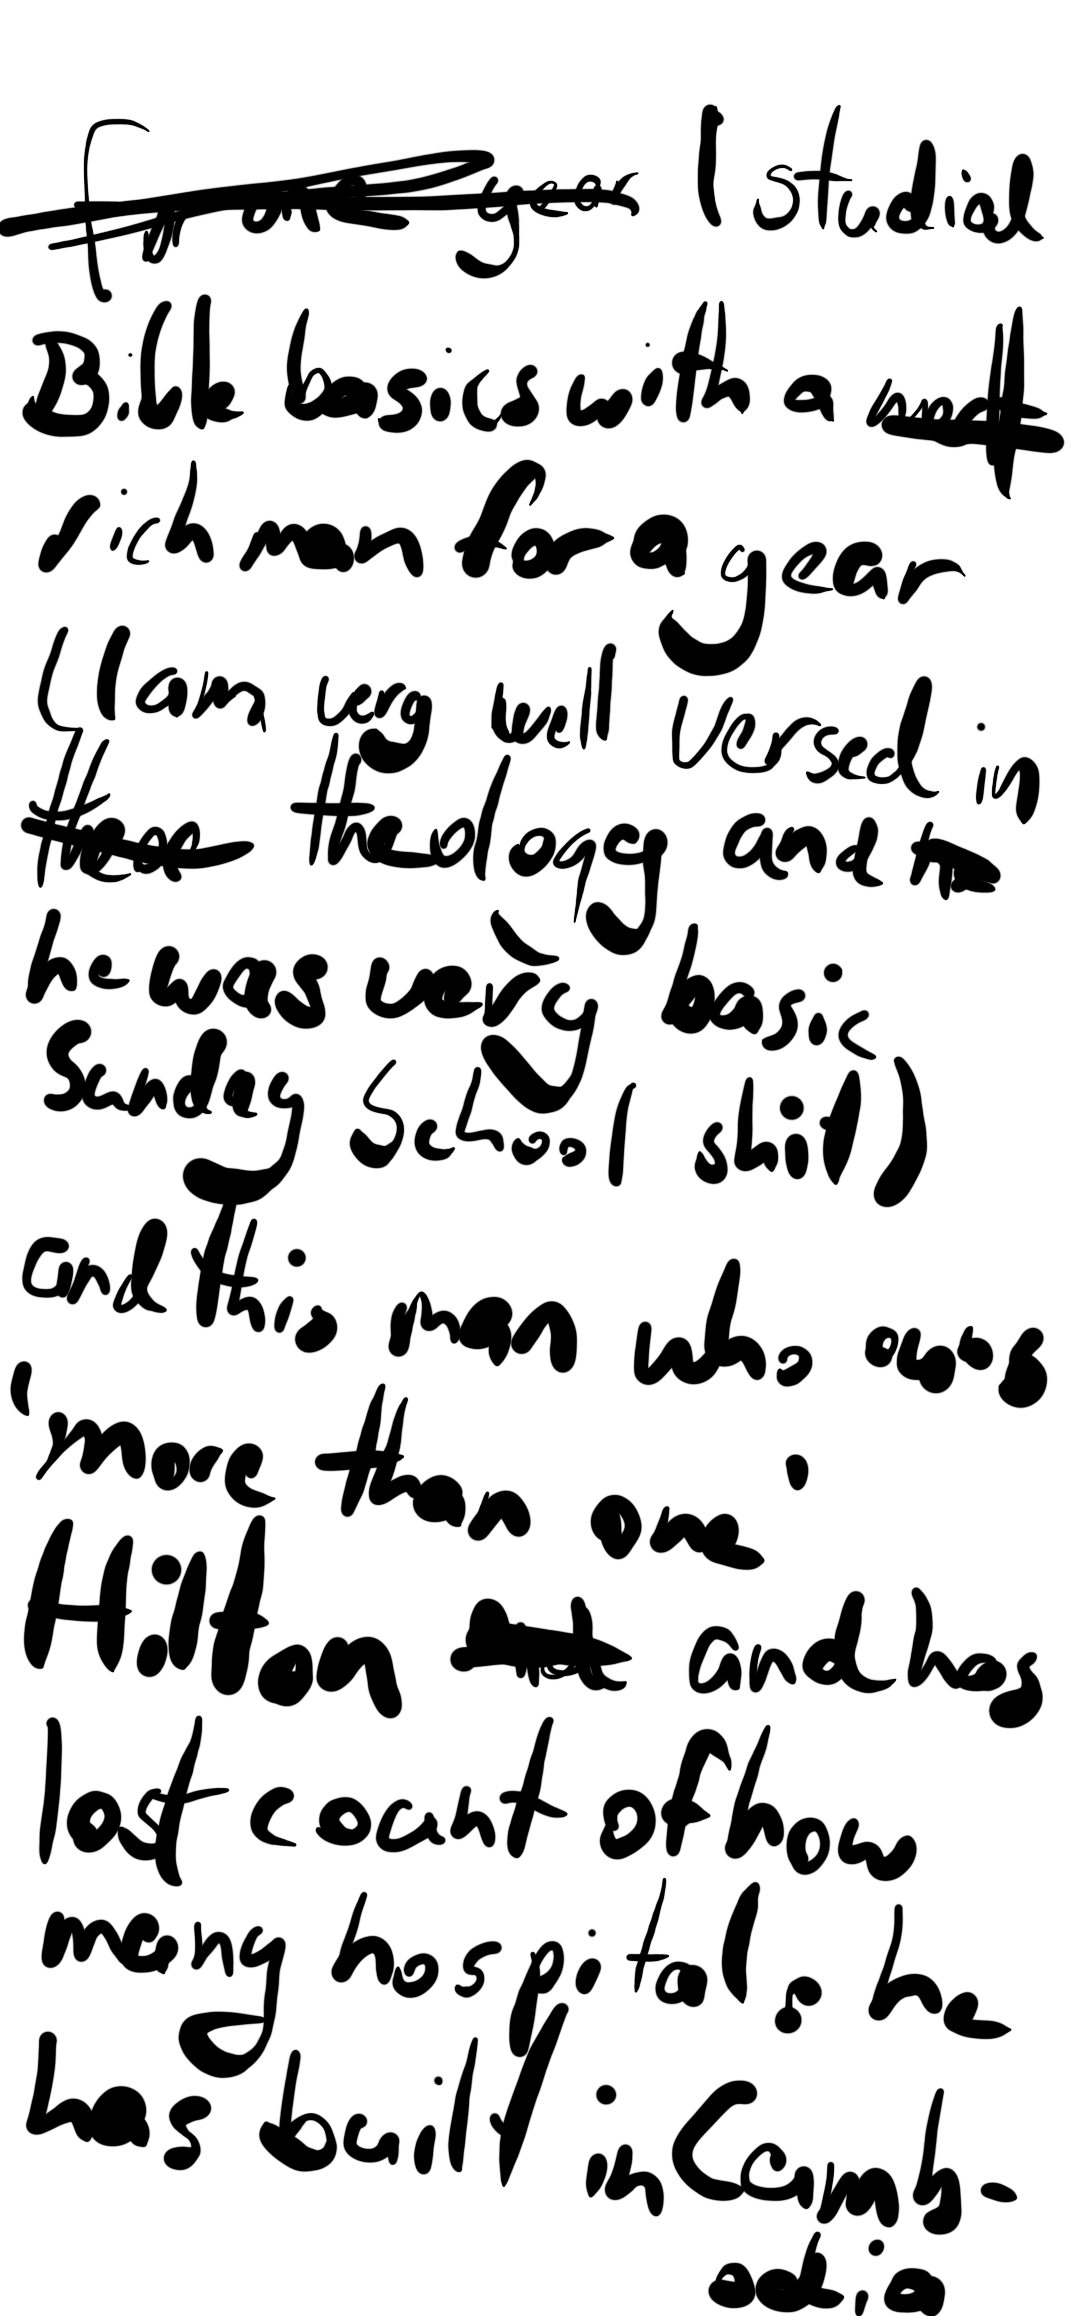 for one year I studied
Bible basics with a
rich man for a year
(I am very well versed in
these theology and
he was very basic
Sunday School shit)
and this man who owns
'more than one'
Hilton and has
lost count of how
many hospitals he
has built in Camb-
odia